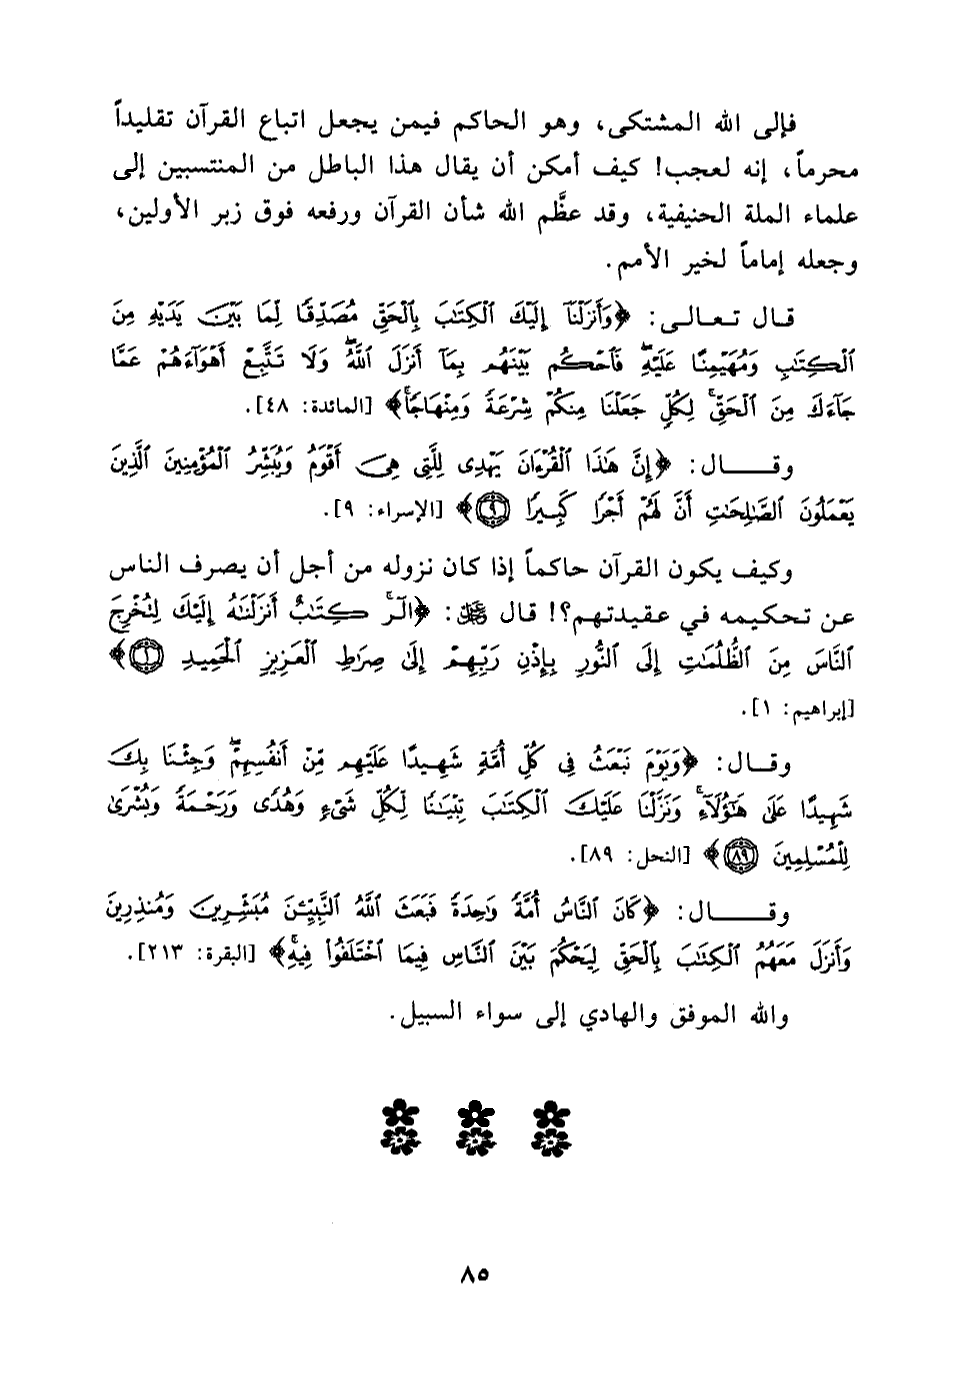 فإلى الله المشتكى، وهو الحاكم فيمن يجعل اتباع القرآن تقليداً
محرماً، إنه لعجب! كيف أمكن أن يقال هذا الباطل من المنتسبين إلى
علماء الملة الحنيفية، وقد عظَّم الله شأن القرآن ورفعه فوق زبر الأولين،
وجعله إماماً لخير الأمم.
قال تعالى: ﴿وَأَنزَلْنَآ إِلَيْكَ ٱلْكِتَٰبَ بِٱلْحَقِّ مُصَدِّقًا لِّمَا بَيْنَ يَدَيْهِ مِنَ
ٱلْكِتَٰبِ وَمُهَيْمِنًا عَلَيْهِ ۖ فَٱحْكُم بَيْنَهُم بِمَآ أَنزَلَ ٱللَّهُ ۖ وَلَا تَتَّبِعْ أَهْوَآءَهُمْ عَمَّا
جَآءَكَ مِنَ ٱلْحَقِّ ۚ لِكُلٍّ جَعَلْنَا مِنكُمْ شِرْعَةً وَمِنْهَاجًا ۚ﴾ [المائدة: ٤٨].
وقـــال: ﴿إِنَّ هَٰذَا ٱلْقُرْءَانَ يَهْدِى لِلَّتِى هِىَ أَقْوَمُ وَيُبَشِّرُ ٱلْمُؤْمِنِينَ ٱلَّذِينَ
يَعْمَلُونَ ٱلصَّٰلِحَٰتِ أَنَّ لَهُمْ أَجْرًا كَبِيرًا ٩﴾ [الإسراء: ٩].
وكيف يكون القرآن حاكماً إذا كان نزوله من أجل أن يصرف الناس
عن تحكيمه في عقيدتهم؟! قال ﷻ: ﴿الٓر ۚ كِتَٰبٌ أَنزَلْنَٰهُ إِلَيْكَ لِتُخْرِجَ
ٱلنَّاسَ مِنَ ٱلظُّلُمَٰتِ إِلَى ٱلنُّورِ بِإِذْنِ رَبِّهِمْ إِلَىٰ صِرَٰطِ ٱلْعَزِيزِ ٱلْحَمِيدِ ١﴾
[إبراهيم: ١].
وقـال: ﴿وَيَوْمَ نَبْعَثُ فِى كُلِّ أُمَّةٍ شَهِيدًا عَلَيْهِم مِّنْ أَنفُسِهِمْ ۖ وَجِئْنَا بِكَ
شَهِيدًا عَلَىٰ هَٰٓؤُلَآءِ ۚ وَنَزَّلْنَا عَلَيْكَ ٱلْكِتَٰبَ تِبْيَٰنًا لِّكُلِّ شَىْءٍ وَهُدًى وَرَحْمَةً وَبُشْرَىٰ
لِلْمُسْلِمِينَ ٨٩﴾ [النحل: ٨٩].
وقـــال: ﴿كَانَ ٱلنَّاسُ أُمَّةً وَٰحِدَةً فَبَعَثَ ٱللَّهُ ٱلنَّبِيِّۦنَ مُبَشِّرِينَ وَمُنذِرِينَ
وَأَنزَلَ مَعَهُمُ ٱلْكِتَٰبَ بِٱلْحَقِّ لِيَحْكُمَ بَيْنَ ٱلنَّاسِ فِيمَا ٱخْتَلَفُوا۟ فِيهِ ۚ﴾ [البقرة: ٢١٣].
والله الموفق والهادي إلى سواء السبيل.
٨٥